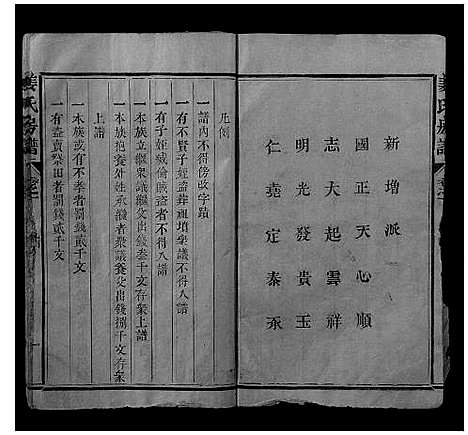 新增派
國正天心順
志大起雲祥
明光發貴玉
仁堯定泰永
凡例
一譜內不得傍改字蹟
一有不賢子姪盜葬祖墳衆議不得入譜
一有子姪偷賊盜者不得入譜
一本族立繼衆議繼父出錢叁千文存衆上譜
一本族抱養外姓承繼者衆議養父出錢捌千文存衆
上譜
一本族或有不孝者罰錢貳千文
一有盜賣祭田者罰錢貳千文
姜氏房譜